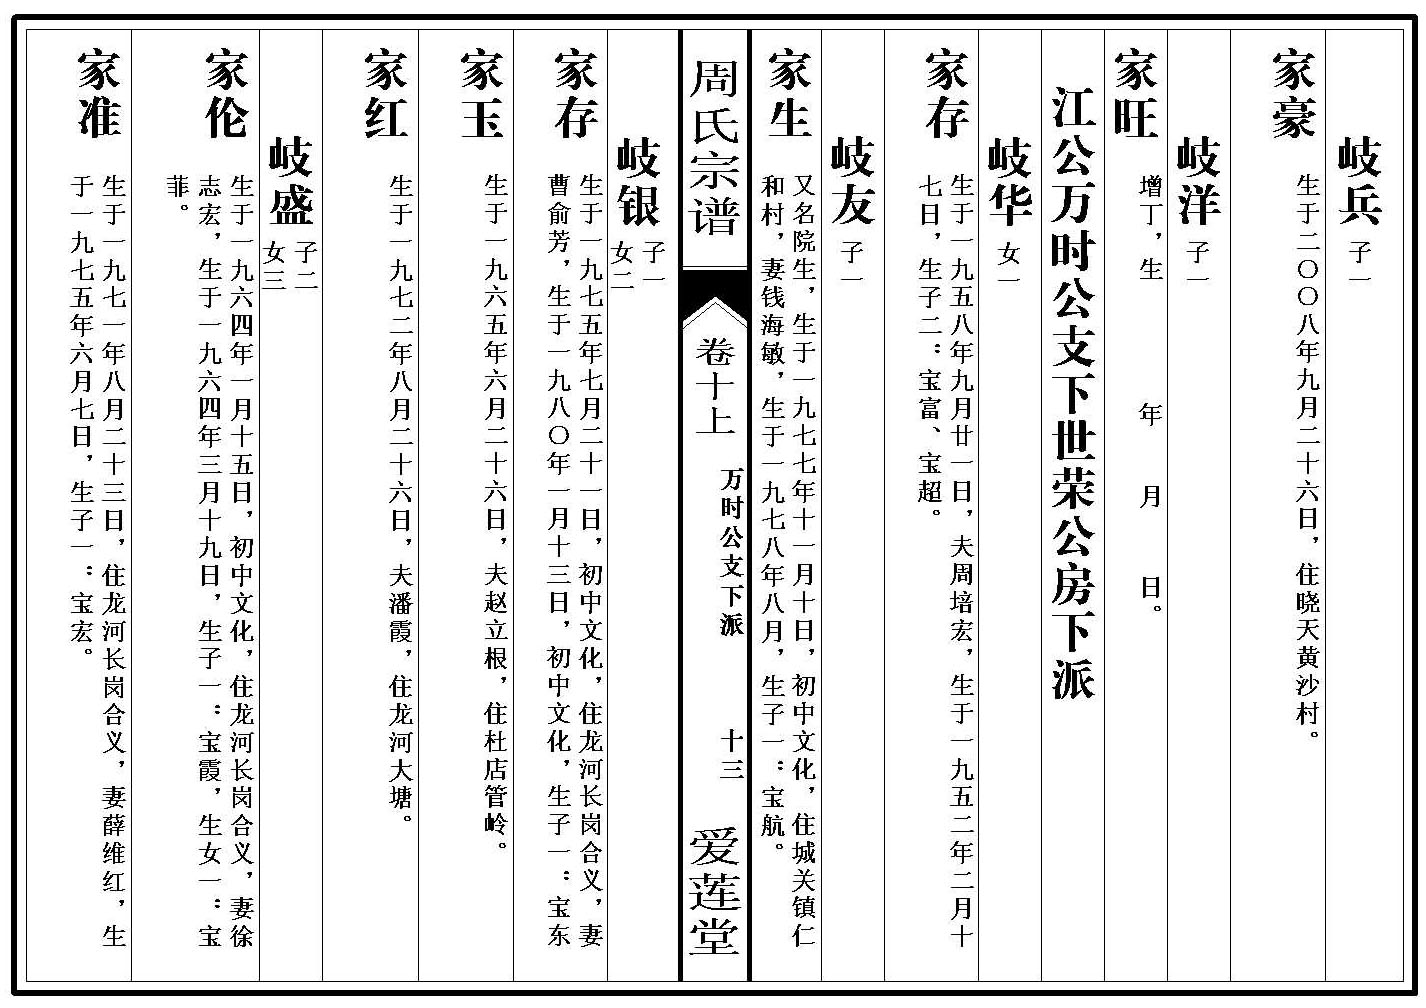 岐兵 子一
家豪 生于二〇〇八年九月二十六日，住晓天黄沙村。
岐洋 子一
家旺 增丁，生 年 月 日。
江公万时公支下世荣公房下派
岐华 女一
家存 生于一九五八年九月廿一日，夫周培宏，生于一九五二年二月十
七日，生子二：宝富、宝超。
岐友 子一
家生 又名院生，生于一九七七年十一月十日，初中文化，住城关镇仁
和村，妻钱海敏，生于一九七八年八月，生子一：宝航。
周氏宗谱 卷十上 万时公支下派 十三 爱莲堂
岐银 子一
女二
家存 生于一九七五年七月二十一日，初中文化，住龙河长岗合义，妻
曹俞芳，生于一九八〇年一月十三日，初中文化，生子一：宝东
家玉 生于一九六五年六月二十六日，夫赵立根，住杜店管岭。
家红 生于一九七二年八月二十六日，夫潘霞，住龙河大塘。
岐盛 子二
女三
家伦 生于一九六四年一月十五日，初中文化，住龙河长岗合义，妻徐
志宏，生于一九六四年三月十九日，生子一：宝霞，生女一：宝
菲。
家准 生于一九七一年八月二十三日，住龙河长岗合义，妻薛维红，生
于一九七五年六月七日，生子一：宝宏。